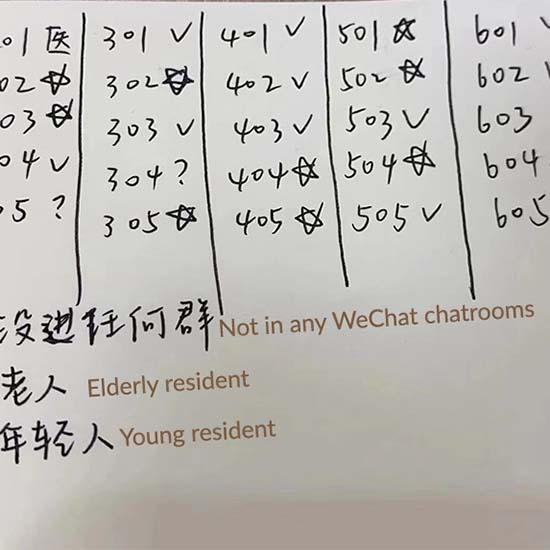 01 医 301 ✓ 401 ✓ 501 ☆ 601 ✓
02 ☆ 302 ☆ 402 ✓ 502 ☆ 602 ✓
03 ☆ 303 ✓ 403 ✓ 503 ✓ 603
04 ✓ 304 ? 404 ☆ 504 ☆ 604
05 ? 305 ☆ 405 ☆ 505 ✓ 605
没进任何群 Not in any WeChat chatrooms
老人 Elderly resident
年轻人 Young resident